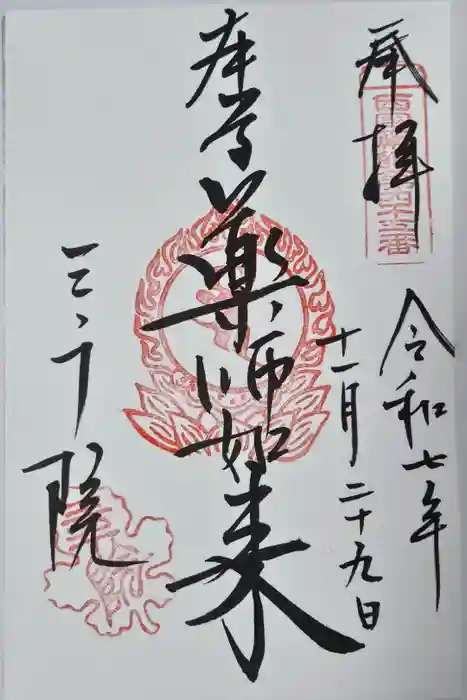 奉拝
令和七年
十一月二十九日
本尊
薬師如来
院